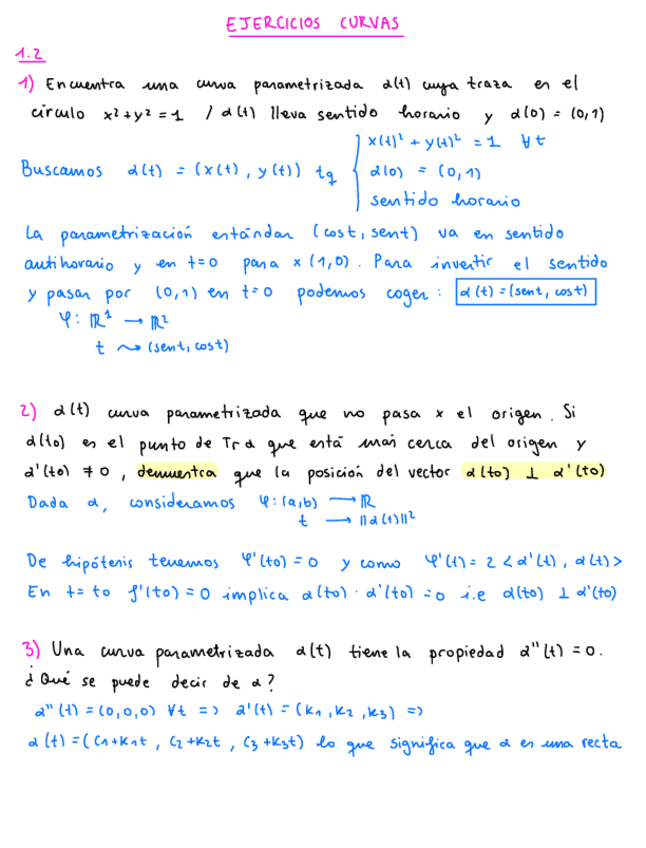 EJERCICIOS CURVAS
1.2
1) Encuentra una curva parametrizada α(t) cuya traza es el
círculo x²+y²=1 / α(t) lleva sentido horario y α(0) = (0,1)
x(t)² + y(t)² = 1 ∀t
Buscamos α(t) = (x(t), y(t)) tq { α(0) = (0,1)
sentido horario
La parametrización estándar (cost, sent) va en sentido
antihorario y en t=0 pasa x (1,0). Para invertir el sentido
y pasar por (0,1) en t=0 podemos coger: α(t)=(sent, cost)
φ: ℝ¹ → ℝ²
t ⇝ (sent, cost)
2) α(t) curva parametrizada que no pasa x el origen. Si
α(to) es el punto de Tr α que está más cerca del origen y
α'(to) ≠ 0, demuestra que la posición del vector α(to) ⊥ α'(to)
Dada α, consideramos φ: (a,b) → ℝ
t → ||α(t)||²
De hipótesis tenemos φ'(to) = 0 y como φ'(t) = 2 <α'(t), α(t)>
En t = to f'(to) = 0 implica α(to) · α'(to) = 0 i.e α(to) ⊥ α'(to)
3) Una curva parametrizada α(t) tiene la propiedad α''(t) = 0.
¿Qué se puede decir de α?
α''(t) = (0,0,0) ∀t => α'(t) = (k1, k2, k3) =>
α(t) = (c1+k1t, c2+k2t, c3+k3t) lo que significa que α es una recta